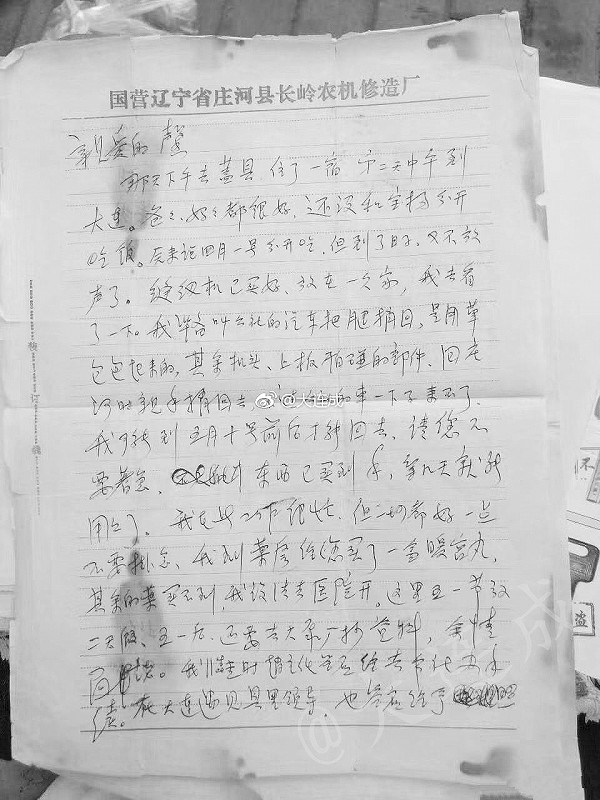 国营辽宁省庄河县长岭农机修造厂
亲爱的馨
那天下午去盖县，住了一宿，第二天中午到
大连。爸爸、妈妈都很好，还没和宝扬分开
吃饭。原来说四月一号分开吃，但到了日子，又不放
声了。缝纫机已买好，放在一久家，我去看
了一下。我准备叫公社的汽车把腿捎回，是用草
包包起来的，其余机头、上板怕碰的部件，回庄
河时亲手捎回去，的车一下子来不了，
我可能到五月十号前后才能回去，请您不
要着急，东西已买到手，拿几天就能
用上了。我在此工作很忙，但一切都好一点
不要挂念，我到药房给您买了一盒暖宫丸，
其余的药买不到，我设法去医院开。这里五一节放
二天假，五一后，还要去大厂抄资料，余情
面
续。在大连遇见县里领导，也答应给予
@大连成
@大连成
装
订
线
盗